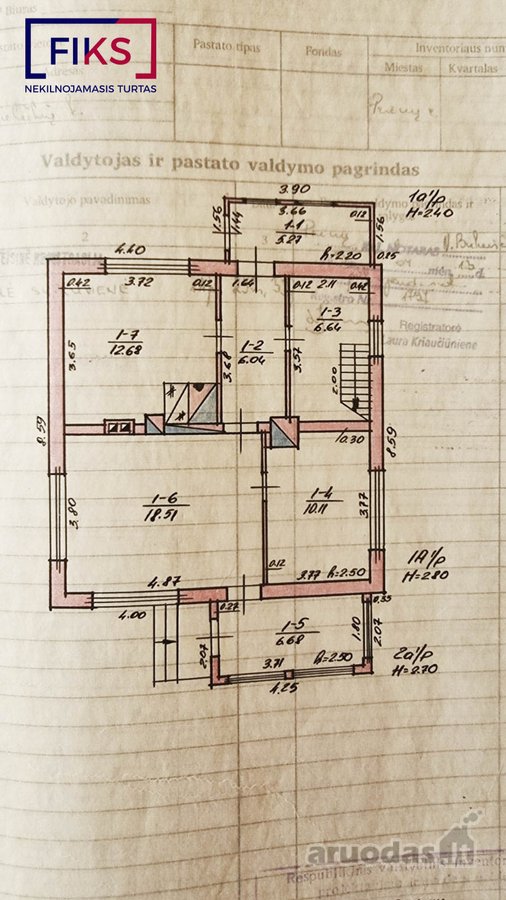 FIKS
NEKILNOJAMASIS TURTAS
Biuras
Pastato tipas
Fondas
Inventoriaus num
Miestas
Kvartalas
Valdytojas ir pastato valdymo pagrindas
Valdytojo pavadinimas
2
3.90
3.66
1.56
1.44
1-1
5.27
0.12
1.56
h=2.20
0.25
1a1/p
H=2.40
4.40
0.42
3.72
0.12
1.64
0.12
2.11
0.42
1-3
6.64
1-7
12.68
1-2
6.04
3.65
3.68
3.57
2.00
Registratorė
Laura Kriaučiūnienė
8.59
0.30
8.59
3.80
1-6
18.51
1-4
10.11
3.77
0.12
3.77
h=2.50
1A1/p
H=2.80
4.87
4.00
0.27
0.35
1-5
6.68
1.80
2.07
2.07
3.71
h=2.50
4.25
2a1/p
H=2.70
aruodas.lt
Respublikinis